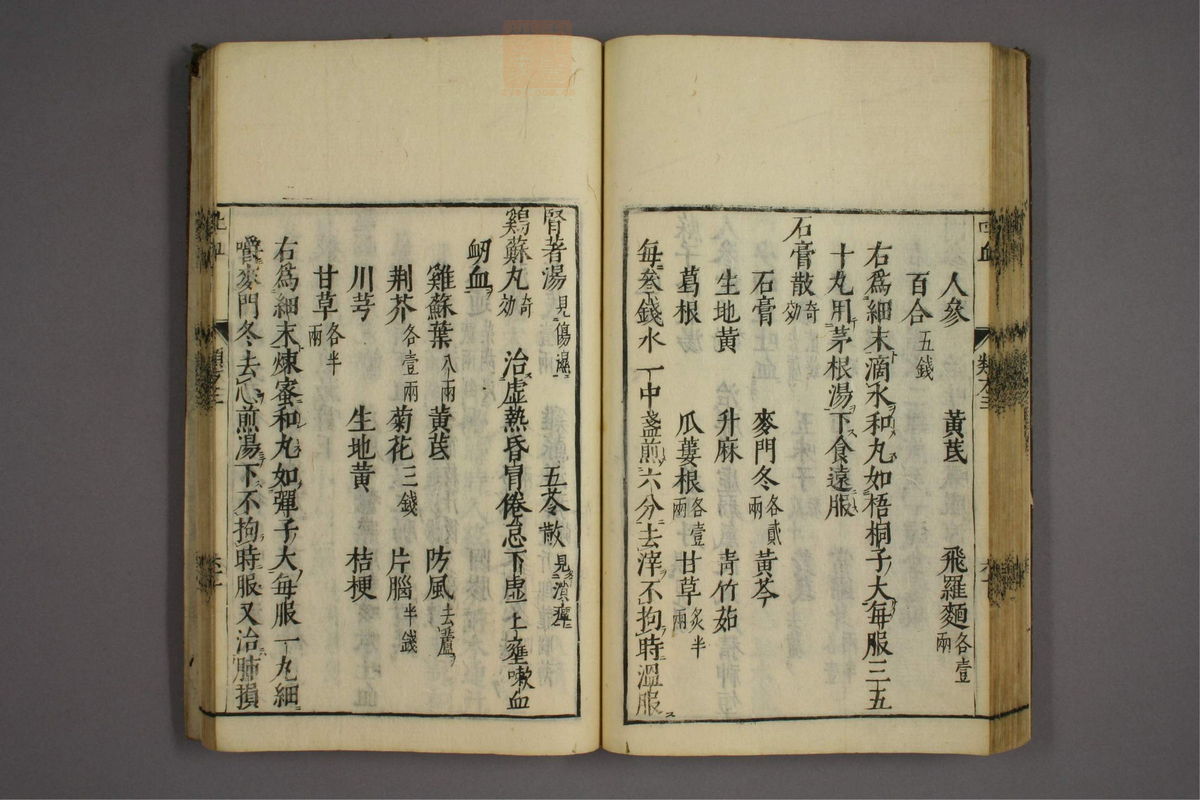 人參　黃芪　飛羅麵各壹兩
百合五錢
右爲細末滴水和丸如梧桐子大每服三五
十丸用茅根湯下食遠服
石膏散奇効
石膏　麥門冬各貳兩　黃芩
生地黃　升麻　青竹茹
葛根　瓜蔞根各壹兩　甘草炙半兩
每叄錢水一中盞煎六分去滓不拘時溫服
腎著湯見傷濕　五苓散見漬癉
鷄蘇丸奇効　治虛熱昏冐倦怠下虛上壅嗽血
衂血
雞蘇葉八兩　黃芪　防風去蘆
荆芥各壹兩　菊花三錢　片腦半錢
川芎　生地黃　桔梗
甘草各半兩
右爲細末煉蜜和丸如彈子大每服一丸細
嚼麥門冬去心煎湯下不拘時服又治肺損